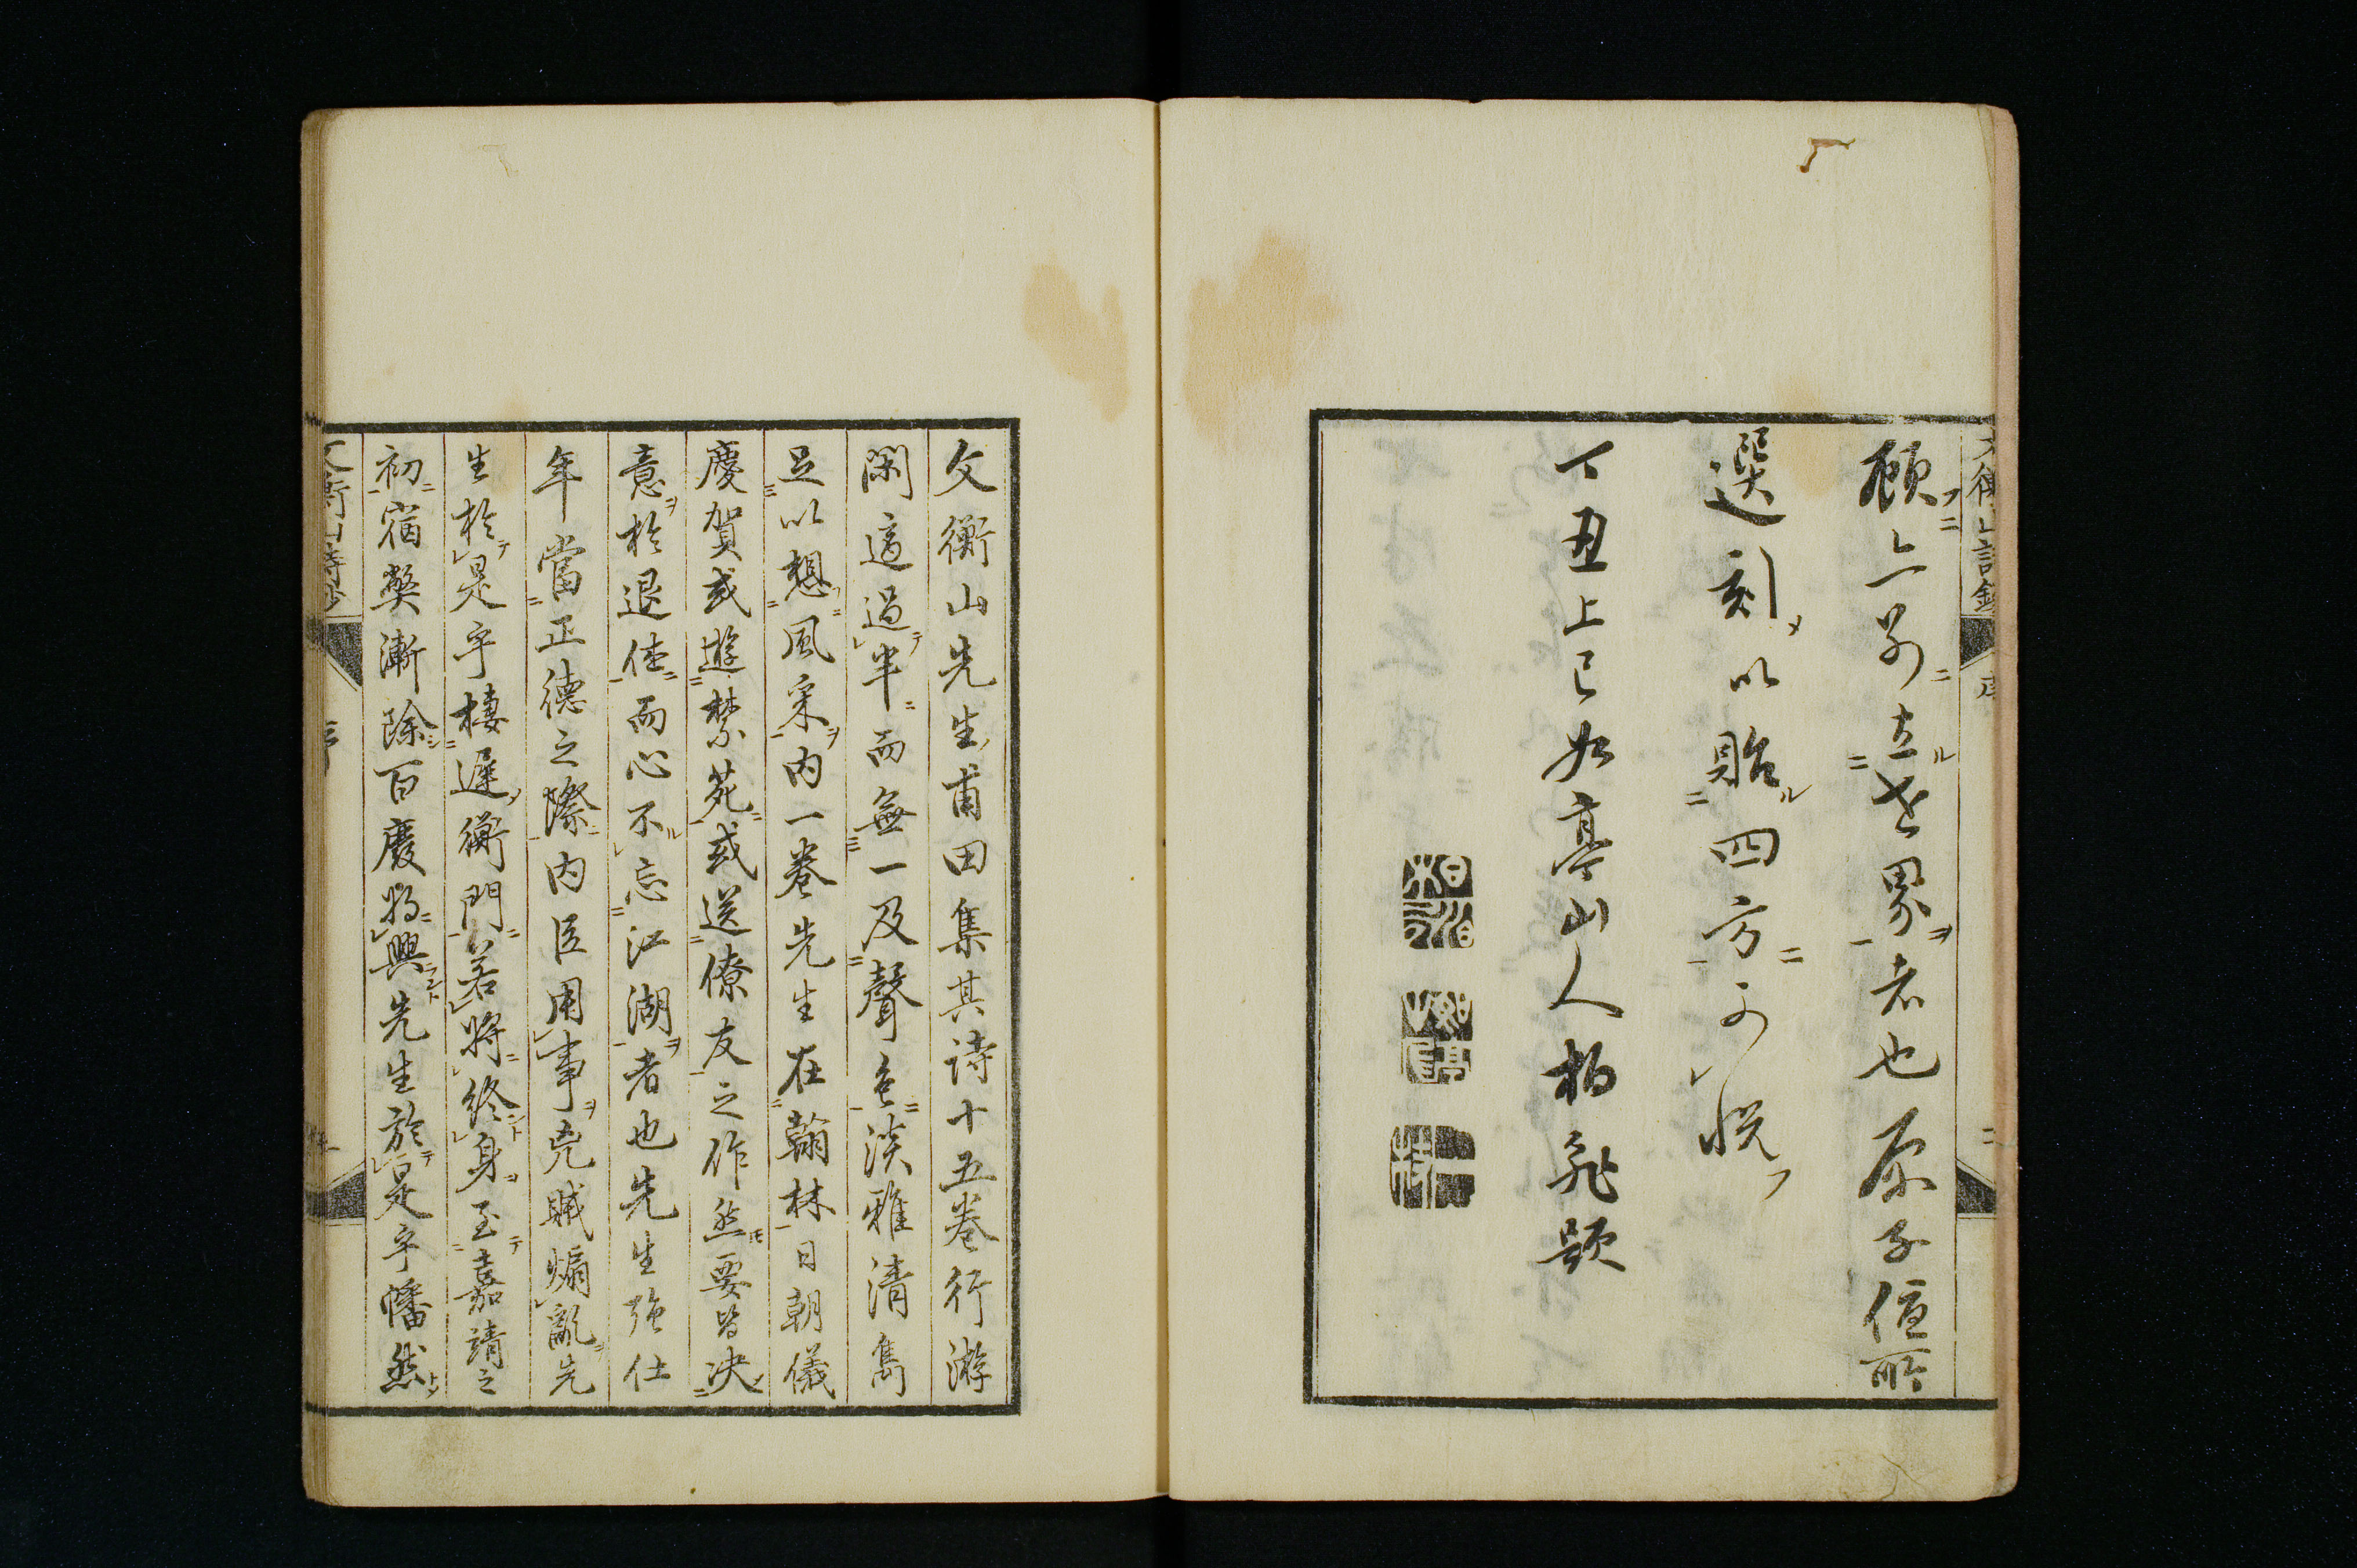 顧亦別立世界者也原子儃所
選刻以貽四方可悦
丁丑上巳如亭山人柏昶題
文衡山先生甫田集其詩十五巻行游
閑適過半而無一及聲色淡雅清雋
足以想風采内一巻先生在翰林日朝儀
慶賀或遊禁苑或送僚友之作然要皆决
意於退佳而心不忘江湖者也先生強仕
年當正德之際内臣用事兇賊煽亂先
生於是乎棲遲衡門若將終身至嘉靖之
初宿獘漸除百廢将興先生於是乎幡然